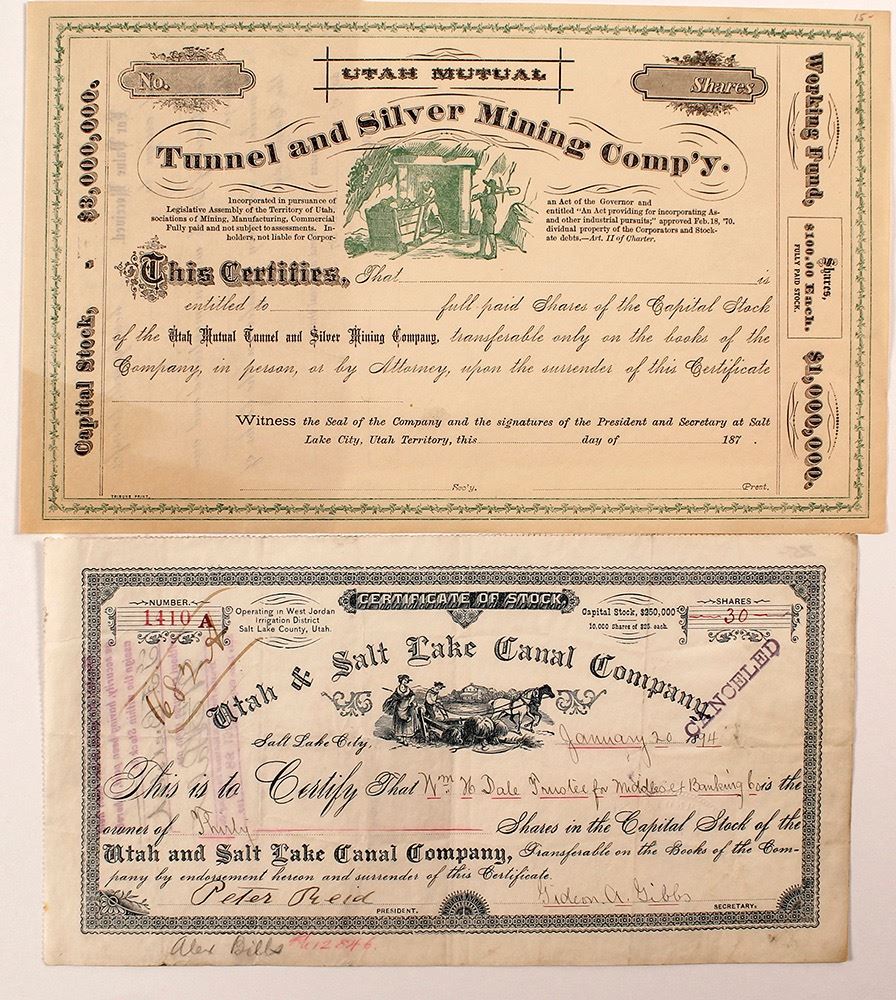 15-
No.
UTAH MUTUAL
Shares
Tunnel and Silver Mining Comp'y.
Incorporated in pursuance of
Legislative Assembly of the Territory of Utah,
sociations of Mining, Manufacturing, Commercial
Fully paid and not subject to assessments. In-
holders, not liable for Corpor-
an Act of the Governor and
entitled "An Act providing for incorporating As-
and other industrial pursuits;" approved Feb. 18, '70.
dividual property of the Corporators and Stock-
ate debts.—Art. II of Charter.
Capital Stock, - $3,000,000.
Working Fund, $1,000,000.
Shares,
$100.00 Each.
FULLY PAID STOCK.
This Certifies, That is
entitled to full paid Shares of the Capital Stock
of the Utah Mutual Tunnel and Silver Mining Company, transferable only on the books of the
Company, in person, or by Attorney, upon the surrender of this Certificate
Witness the Seal of the Company and the signatures of the President and Secretary at Salt
Lake City, Utah Territory, this day of 187 .
Sec'y. Prest.
TRIBUNE PRINT.
CERTIFICATE OF STOCK
NUMBER
1410 A
Operating in West Jordan
Irrigation District
Salt Lake County, Utah.
Capital Stock, $250,000
10,000 Shares of $25. each.
SHARES
30
Utah & Salt Lake Canal Company
CANCELED
Salt Lake City, January 20 1894
This is to Certify That Wm H Dale Trustee for Middlesex Banking Co is the
owner of Thirty Shares in the Capital Stock of the
Utah and Salt Lake Canal Company, Transferable on the Books of the Com-
pany by endorsement hereon and surrender of this Certificate.
Peter Reid
PRESIDENT.
Gideon A. Gibbs
SECRETARY.